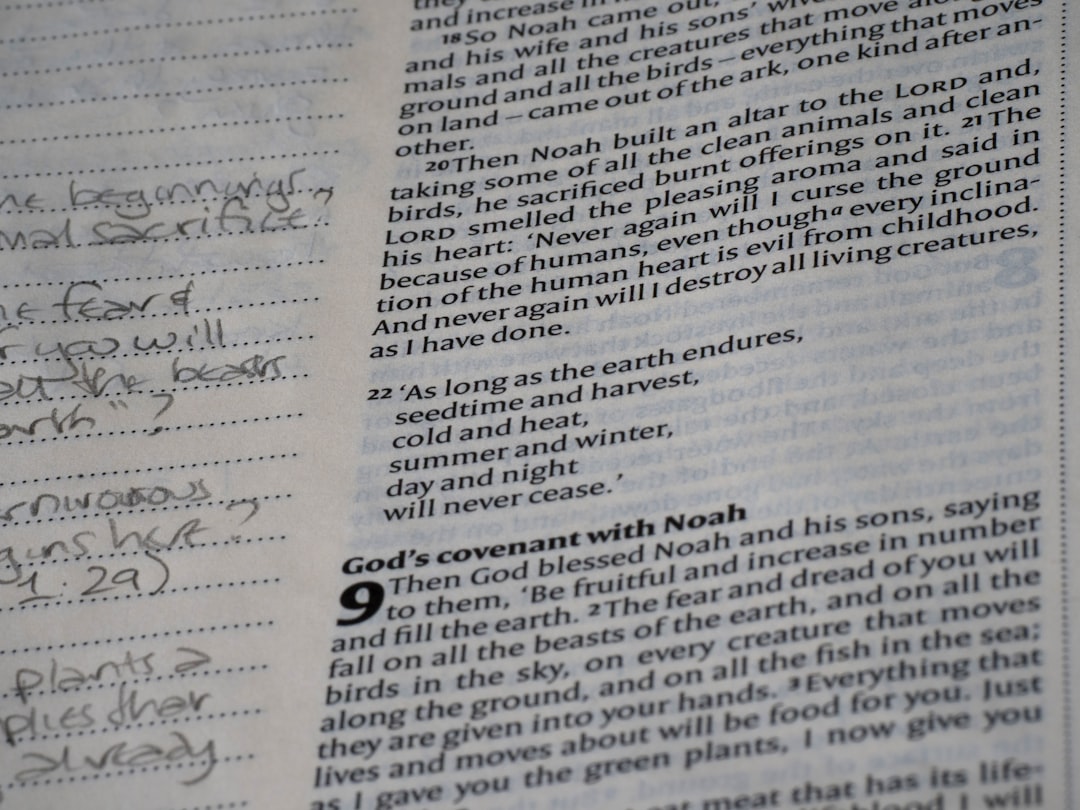 he beginnings,
mal sacrifice.
he fear &
r you will
all the beasts
earth"?
begins here?
1:29)
plants a
plies that
already
they
and increase in
18So Noah came out,
and his wife and his sons' wives
mals and all the creatures that move along
ground and all the birds – everything that moves
on land – came out of the ark, one kind after an-
other.
20Then Noah built an altar to the LORD and,
taking some of all the clean animals and clean
birds, he sacrificed burnt offerings on it. 21The
LORD smelled the pleasing aroma and said in
his heart: 'Never again will I curse the ground
because of humans, even thougha every inclina-
tion of the human heart is evil from childhood.
And never again will I destroy all living creatures,
as I have done.
22 'As long as the earth endures,
seedtime and harvest,
cold and heat,
summer and winter,
day and night
will never cease.'
God's covenant with Noah
9 Then God blessed Noah and his sons, saying
to them, 'Be fruitful and increase in number
and fill the earth. 2The fear and dread of you will
fall on all the beasts of the earth, and on all the
birds in the sky, on every creature that moves
along the ground, and on all the fish in the sea;
they are given into your hands. 3Everything that
lives and moves about will be food for you. Just
as I gave you the green plants, I now give you
eat meat that has its life-
blood I will